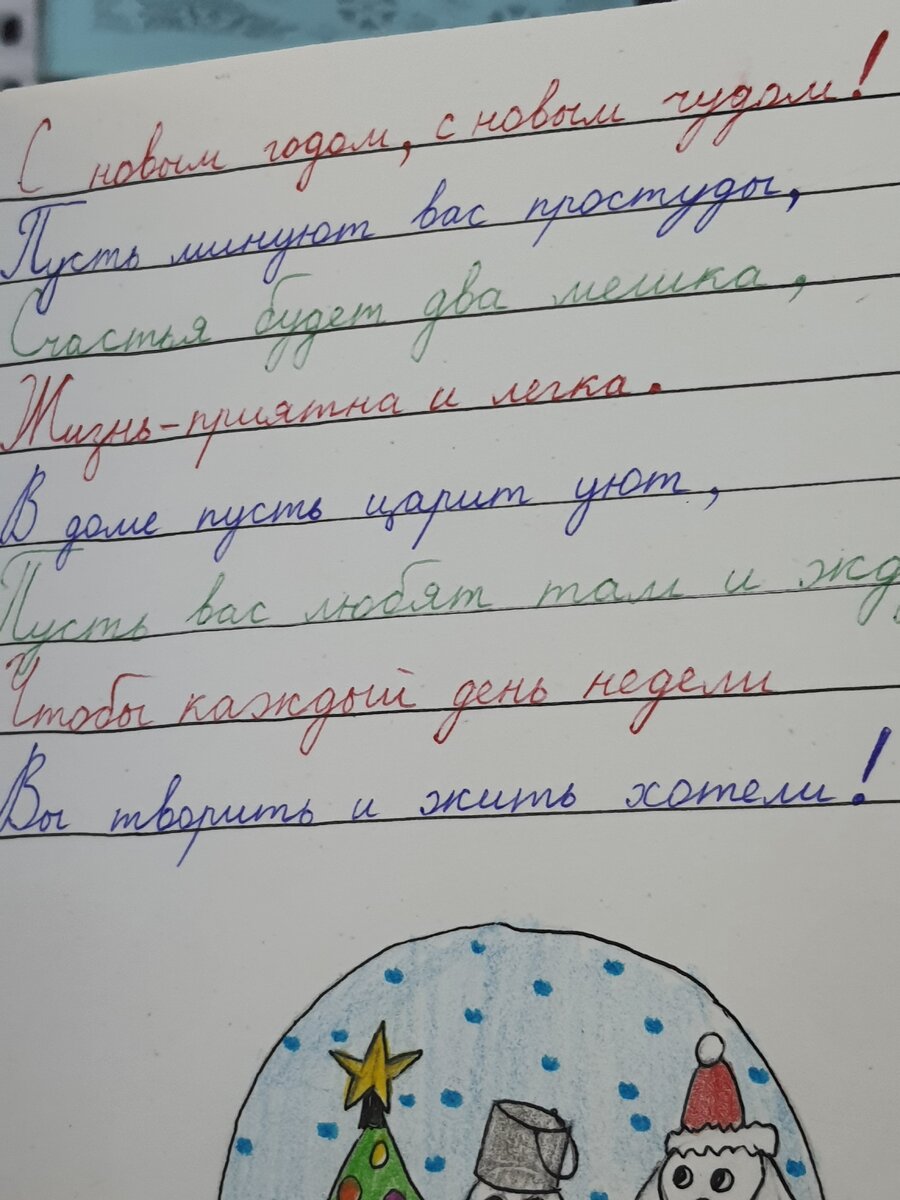 С новым годом, с новым чудом!
Пусть минуют вас простуды,
Счастья будет два мешка,
Жизнь-приятна и легка.
В доме пусть царит уют,
Пусть вас любят там и жд
Чтобы каждый день недели
Вы творить и жить хотели!